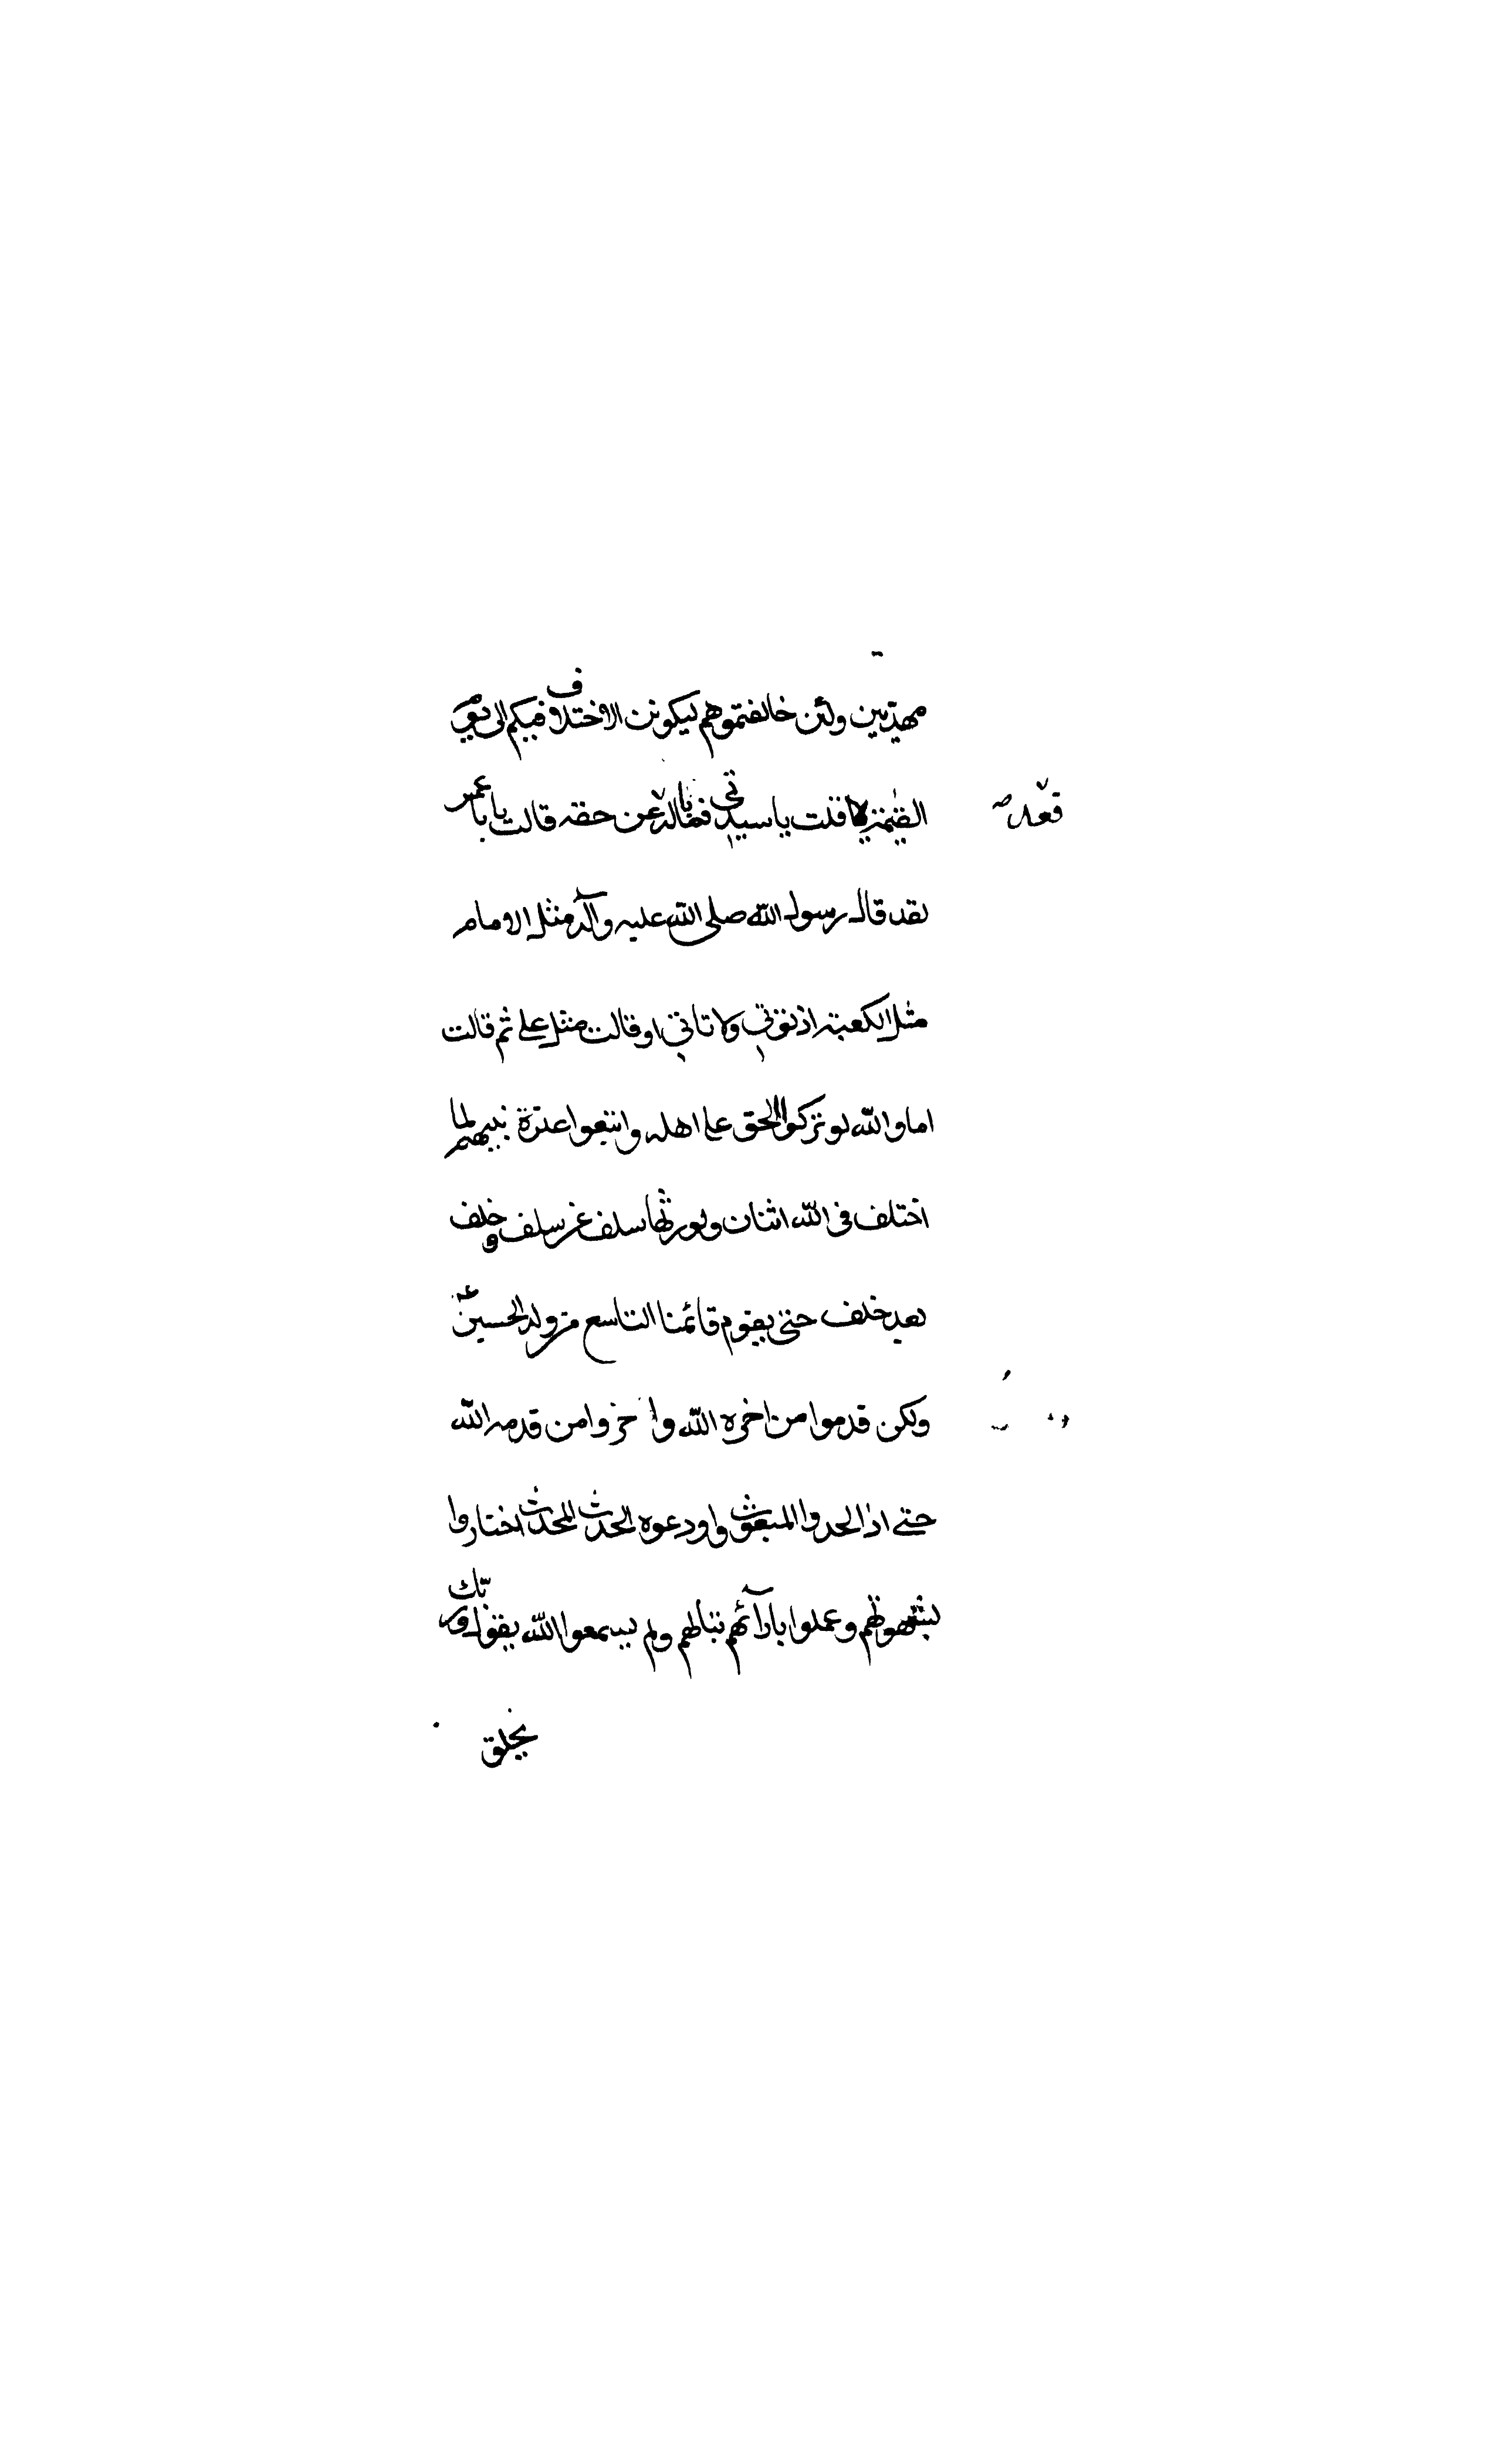 مهديين ولئن خالفتموهم ليكونن الاختلاف فيكم الى يوم
القيمة قلت يا سيدتي فما باله قعد عن حقه قالت يا با عمر
لقد قال رسول الله صلى الله عليه وآله مثل الامام
مثل الكعبة اذ تؤتي ولا تاتي او قالت مثل علي ثم قالت
اما والله لو تركوا الحق على اهله واتبعوا عترة نبيهم لما
اختلف في الله اثنان ولورثها سلف عن سلف وخلف
بعد خلف حتى يقوم قائمنا التاسع من ولد الحسين ع
ولكن قدموا من اخره الله واخروا من قدمه الله
حتى اذا الحدوا المبعوث واودعوه الجدث المجدث اختاروا
بشهوتهم وعملوا بارآئهم تبا لهم ولم يسمعوا الله يقول وربك
يخلق